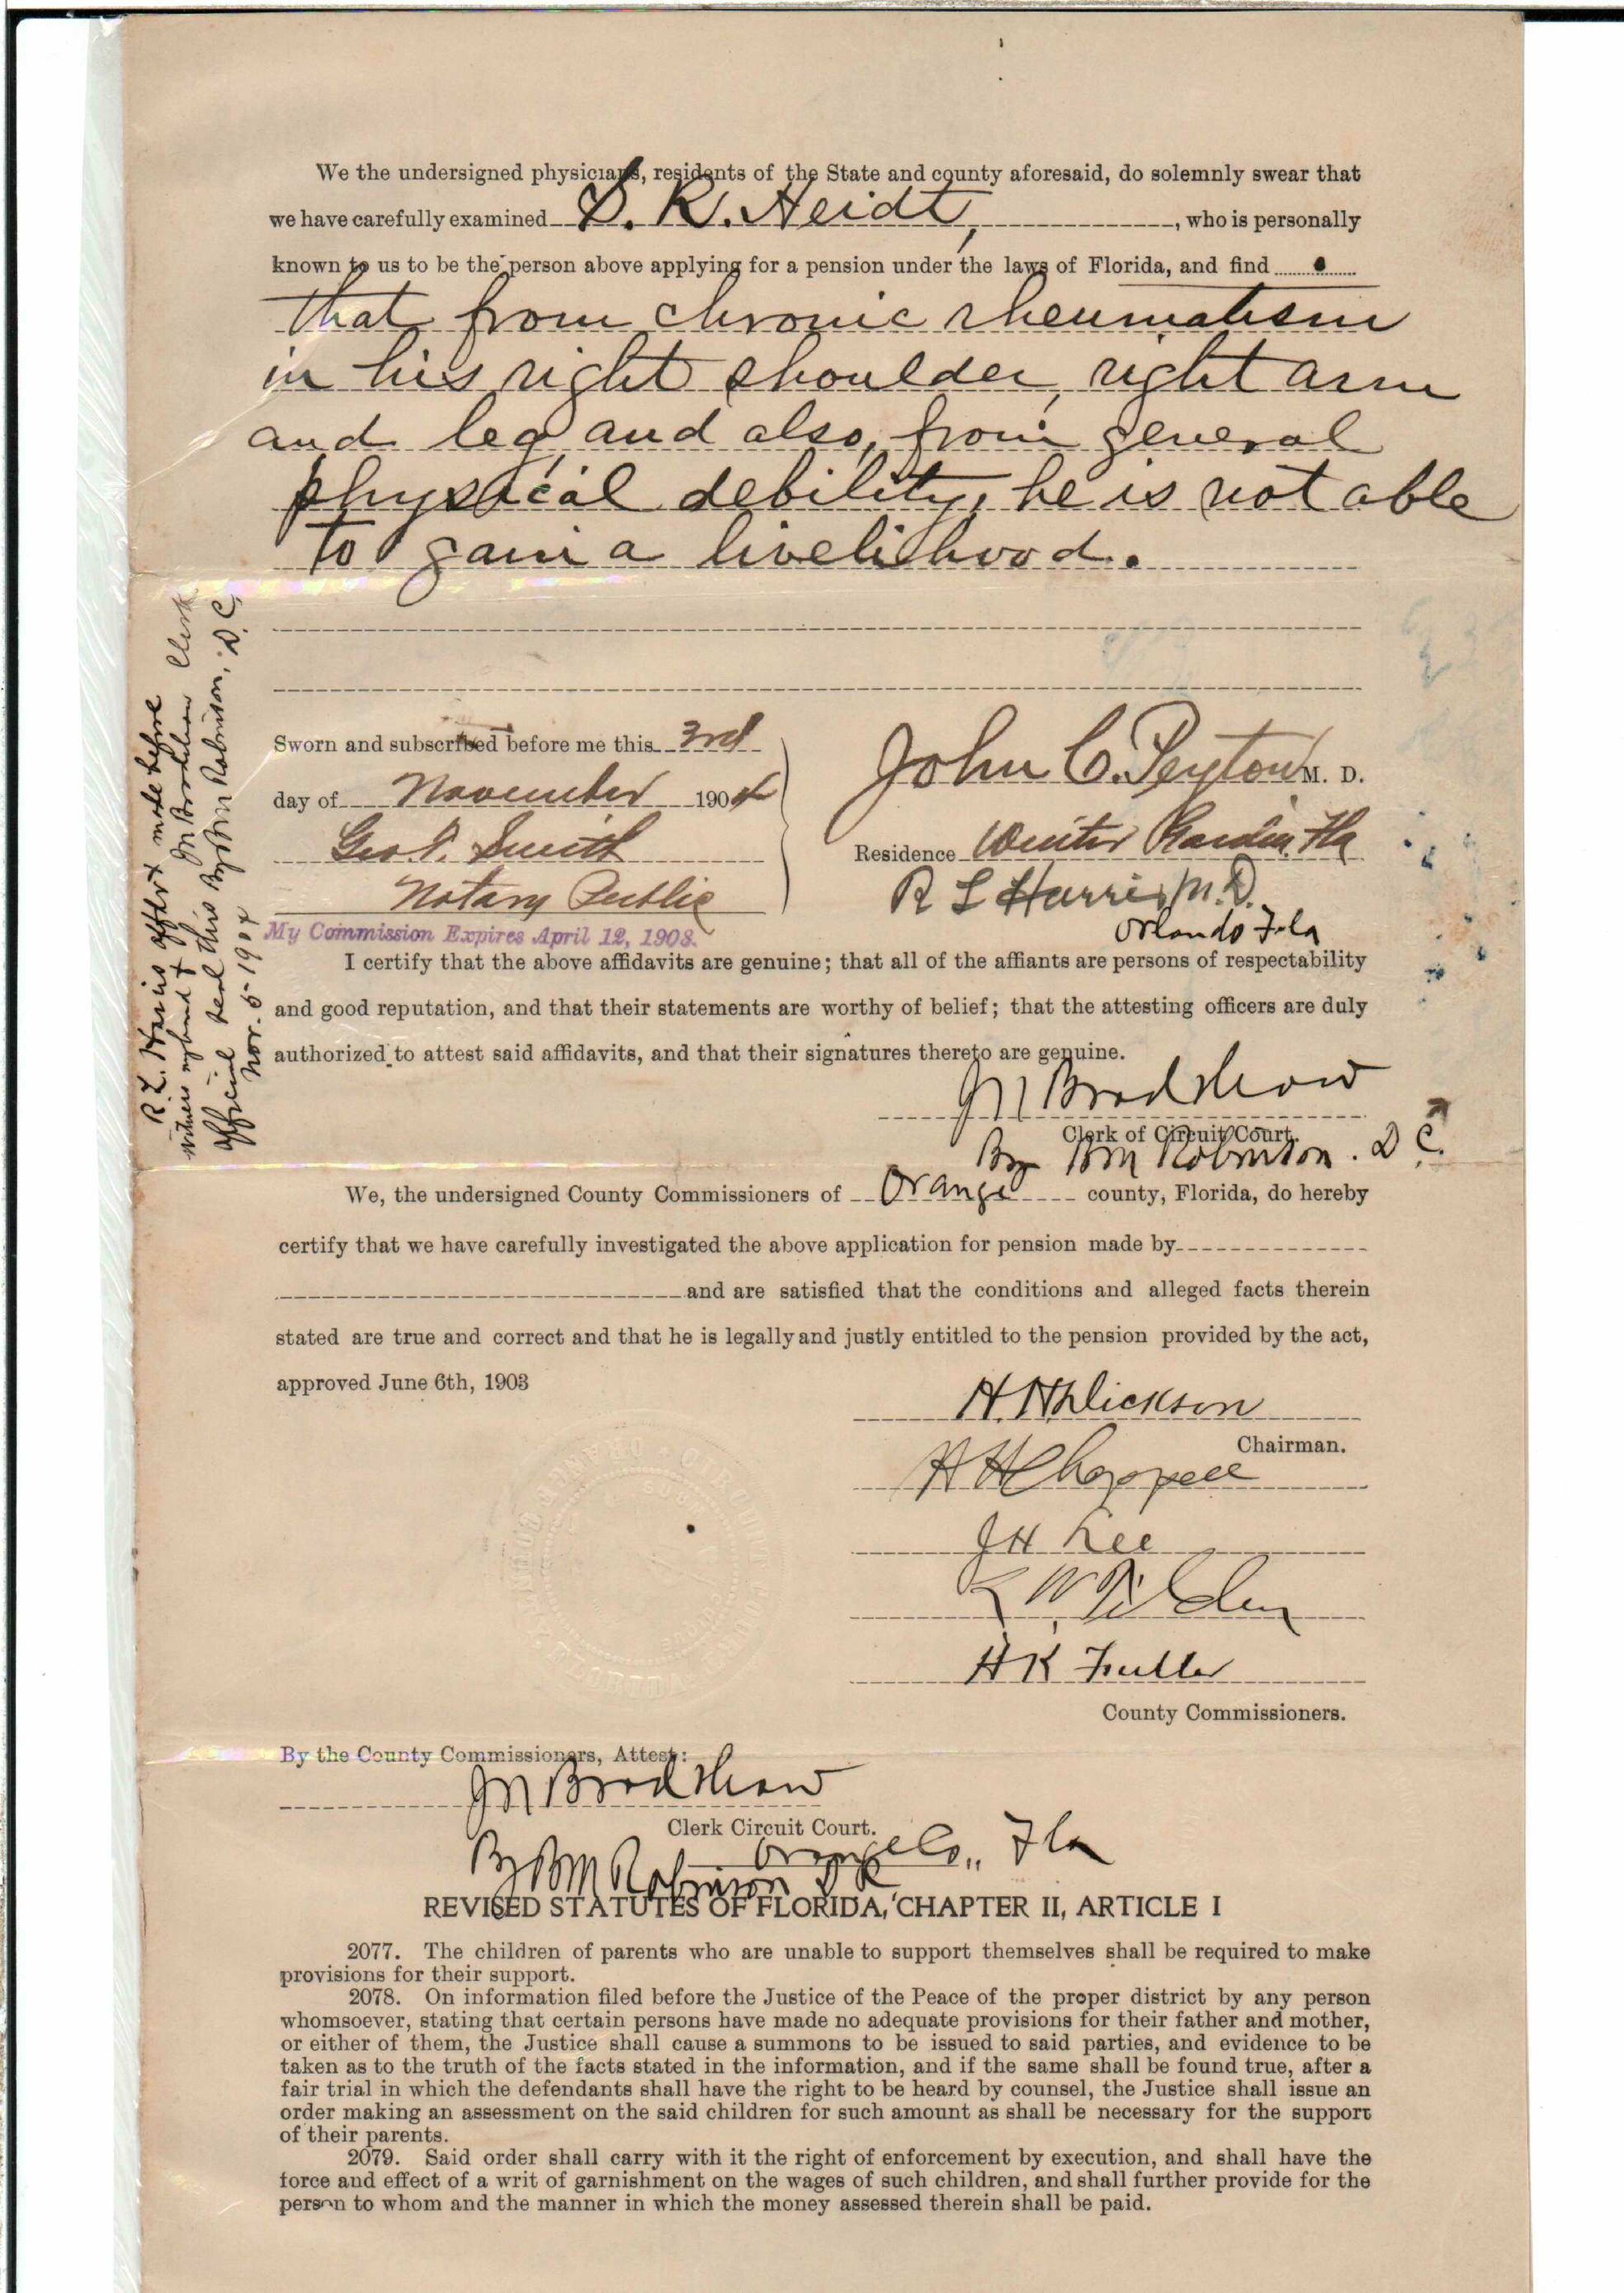 We the undersigned physicians, residents of the State and county aforesaid, do solemnly swear that
we have carefully examined D. R. Heidt, , who is personally
known to us to be the person above applying for a pension under the laws of Florida, and find
that from chronic rheumatism
in his right shoulder, right arm
and leg, and also, from general
physical debility, he is not able
to gain a livelihood.
R. L. Harris offt made before
witness my hand &
official seal this By BM Robinson, D.C.
Nov. 5-1904
Clerk
Sworn and subscribed before me this 3rd
day of November 1904
Geo. Smith
Notary Public
My Commission Expires April 12, 1908.
John C. Peyton M. D.
Residence Winter Garden, Fla
R L Harris, M.D.
Orlando Fla
I certify that the above affidavits are genuine; that all of the affiants are persons of respectability
and good reputation, and that their statements are worthy of belief; that the attesting officers are duly
authorized to attest said affidavits, and that their signatures thereto are genuine.
J M Bradshaw
Clerk of Circuit Court.
By BM Robinson. D C.
We, the undersigned County Commissioners of Orange county, Florida, do hereby
certify that we have carefully investigated the above application for pension made by
and are satisfied that the conditions and alleged facts therein
stated are true and correct and that he is legally and justly entitled to the pension provided by the act,
approved June 6th, 1903
H. H. Dickson
Chairman.
H H Chappell
J H Lee
L W Tilden
H K Fuller
County Commissioners.
By the County Commissioners, Attest:
J M Bradshaw
Clerk Circuit Court.
Orange Co., Fla
By BM Robinson
REVISED STATUTES OF FLORIDA, CHAPTER II, ARTICLE I
2077. The children of parents who are unable to support themselves shall be required to make
provisions for their support.
2078. On information filed before the Justice of the Peace of the proper district by any person
whomsoever, stating that certain persons have made no adequate provisions for their father and mother,
or either of them, the Justice shall cause a summons to be issued to said parties, and evidence to be
taken as to the truth of the facts stated in the information, and if the same shall be found true, after a
fair trial in which the defendants shall have the right to be heard by counsel, the Justice shall issue an
order making an assessment on the said children for such amount as shall be necessary for the support
of their parents.
2079. Said order shall carry with it the right of enforcement by execution, and shall have the
force and effect of a writ of garnishment on the wages of such children, and shall further provide for the
person to whom and the manner in which the money assessed therein shall be paid.